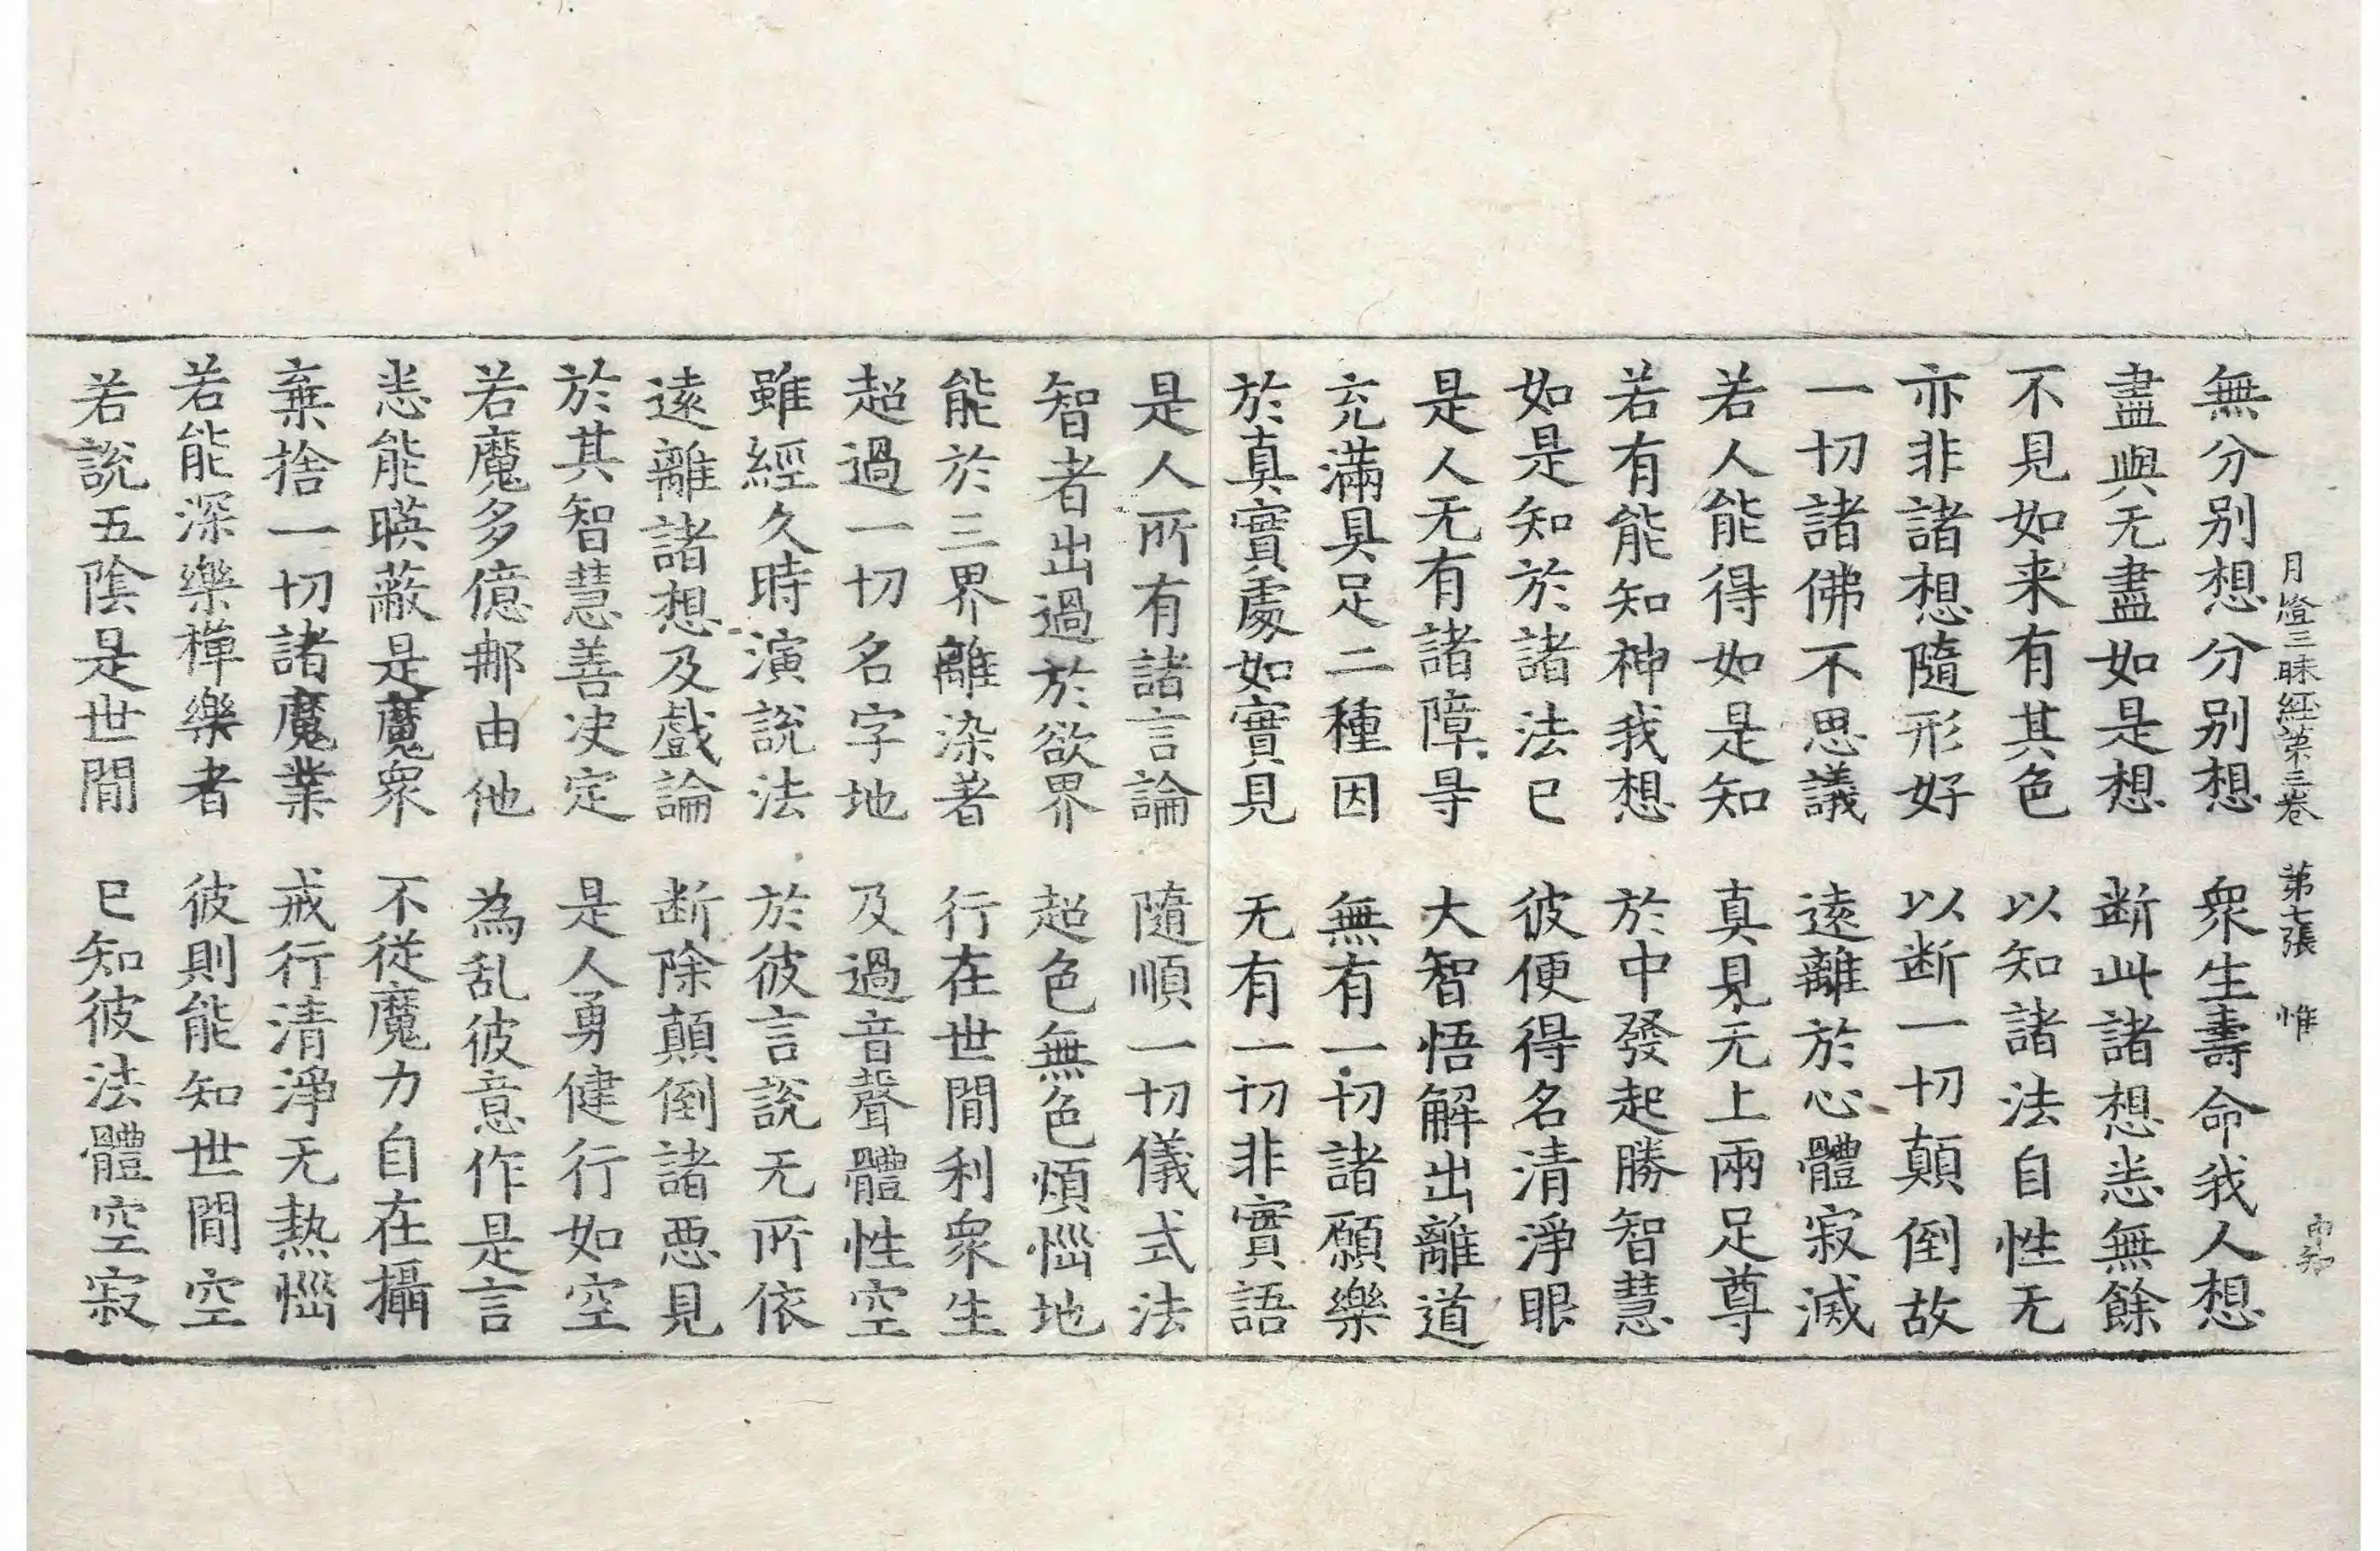 月燈三昧經第三卷　第七張　惟
無分別想分別想　衆生壽命我人想
盡與无盡如是想　断此諸想恙無餘
不見如来有其色　以知諸法自性无
亦非諸想隨形好　以断一切顛倒故
一切諸佛不思議　遠離於心體寂滅
若人能得如是知　真見无上兩足尊
若有能知神我想　於中發起勝智慧
如是知於諸法已　彼便得名清淨眼
是人无有諸障㝵　大智悟解出離道
充滿具足二種因　無有一切諸願樂
於真實處如實見　无有一切非實語
是人所有諸言論　隨順一切儀式法
智者出過於欲界　超色無色煩惱地
能於三界離染著　行在世間利衆生
超過一切名字地　及過音聲體性空
雖經久時演說法　於彼言說无所依
遠離諸想及戲論　断除顛倒諸惡見
於其智慧善决定　是人勇健行如空
若魔多億那由他　為乱彼意作是言
悉能暎蔽是魔衆　不從魔力自在攝
棄捨一切諸魔業　戒行清淨无熱惱
若能深樂禪樂者　彼則能知世間空
若說五陰是世間　已知彼法體空寂